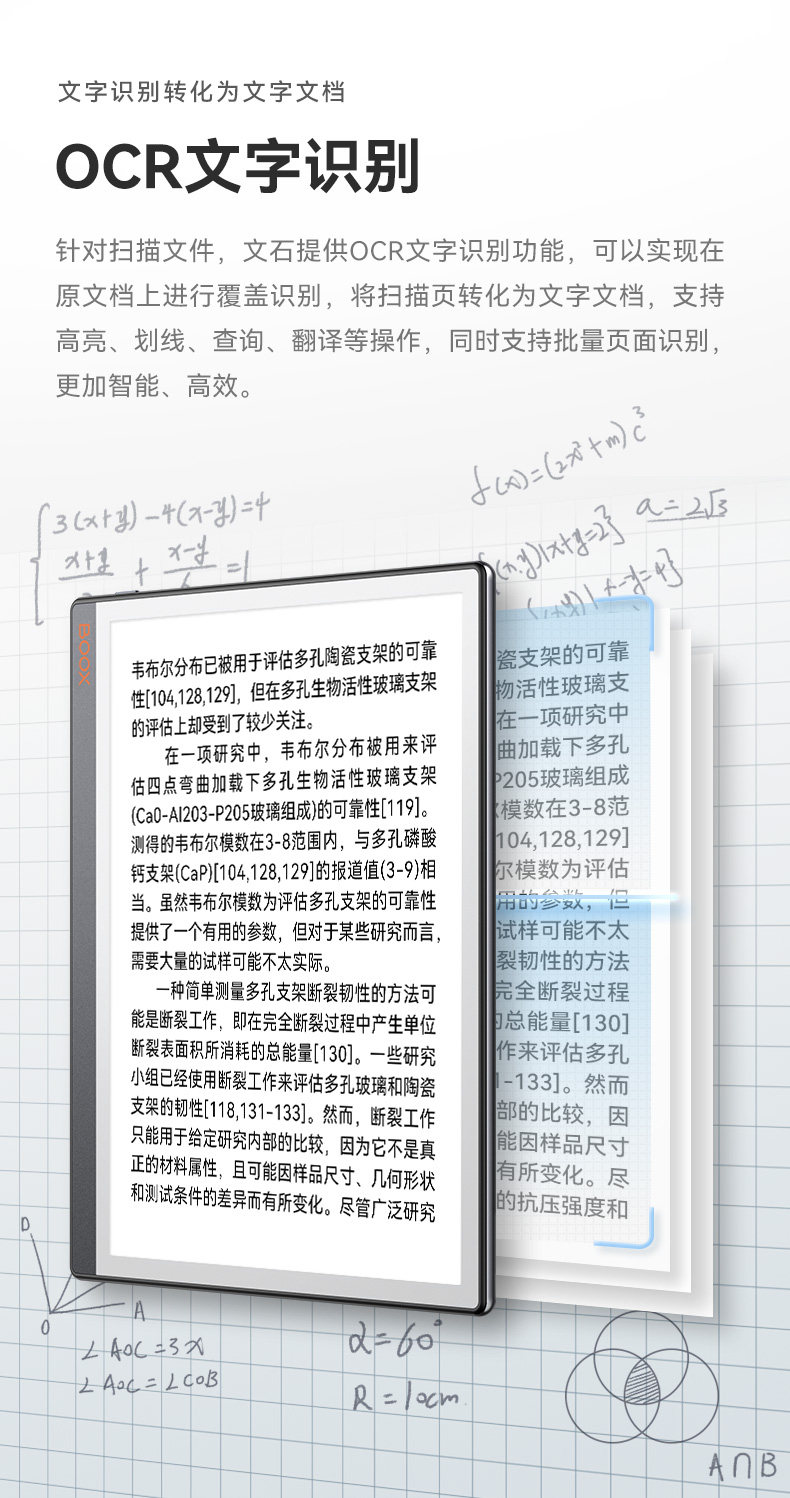 文字识别转化为文字文档
OCR文字识别
针对扫描文件，文石提供OCR文字识别功能，可以实现在
原文档上进行覆盖识别，将扫描页转化为文字文档，支持
高亮、划线、查询、翻译等操作，同时支持批量页面识别，
更加智能、高效。
f(x)=(2x²+m)c³
3(x+y)-4(x-y)=4
a=2√3
x+y
x-y
+
=1
(x,y)|x+y=2}
BOOX
韦布尔分布已被用于评估多孔陶瓷支架的可靠
性[104,128,129]，但在多孔生物活性玻璃支架
的评估上却受到了较少关注。
在一项研究中，韦布尔分布被用来评
估四点弯曲加载下多孔生物活性玻璃支架
(Ca0-AI203-P205玻璃组成)的可靠性[119]。
测得的韦布尔模数在3-8范围内，与多孔磷酸
钙支架(CaP)[104,128,129]的报道值(3-9)相
当。虽然韦布尔模数为评估多孔支架的可靠性
提供了一个有用的参数，但对于某些研究而言，
需要大量的试样可能不太实际。
一种简单测量多孔支架断裂韧性的方法可
能是断裂工作，即在完全断裂过程中产生单位
断裂表面积所消耗的总能量[130]。一些研究
小组已经使用断裂工作来评估多孔玻璃和陶瓷
支架的韧性[118,131-133]。然而，断裂工作
只能用于给定研究内部的比较，因为它不是真
正的材料属性，且可能因样品尺寸、几何形状
和测试条件的差异而有所变化。尽管广泛研究
瓷支架的可靠
物活性玻璃支
在一项研究中
曲加载下多孔
P205玻璃组成
模数在3-8范
104,128,129]
尔模数为评估
用的参数，但
试样可能不太
裂韧性的方法
完全断裂过程
总能量[130]
作来评估多孔
-133]。然而
部的比较，因
能因样品尺寸
有所变化。尽
的抗压强度和
D
O
A
∠AOC=3x
∠AOC=∠COB
α=60°
R=10cm
A∩B